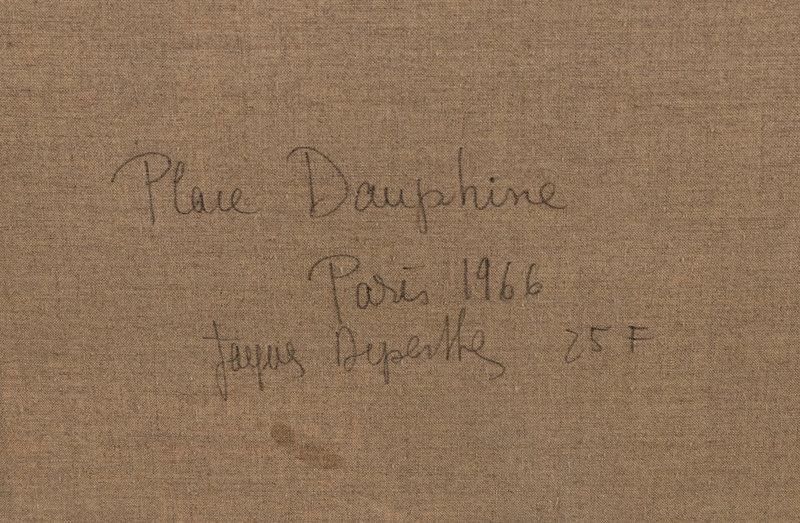 Place Dauphine
Paris 1966
Jacques Deperthes 25 F